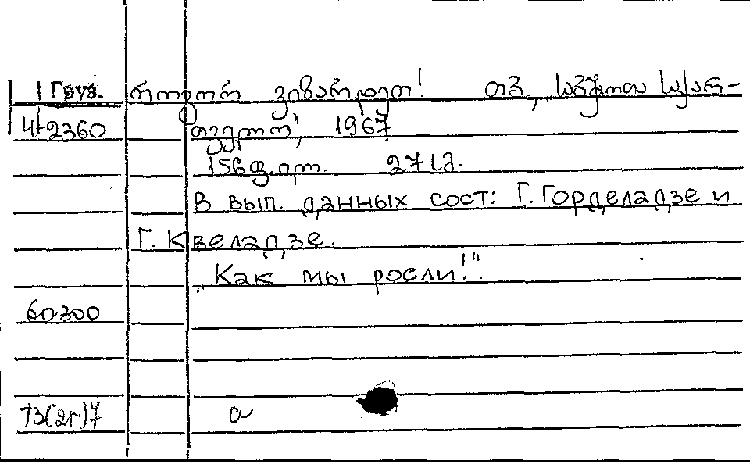 Груз. როგორ ვიზარდეთ! თბ., საბჭოთა საქარ-
4-2360 თველო, 1967
156 გვ. 271 გ.
В вып. данных сост: Г. Горделадзе и
Г. Квеладзе.
„Как мы росли!".
60300
73(2г)7 a